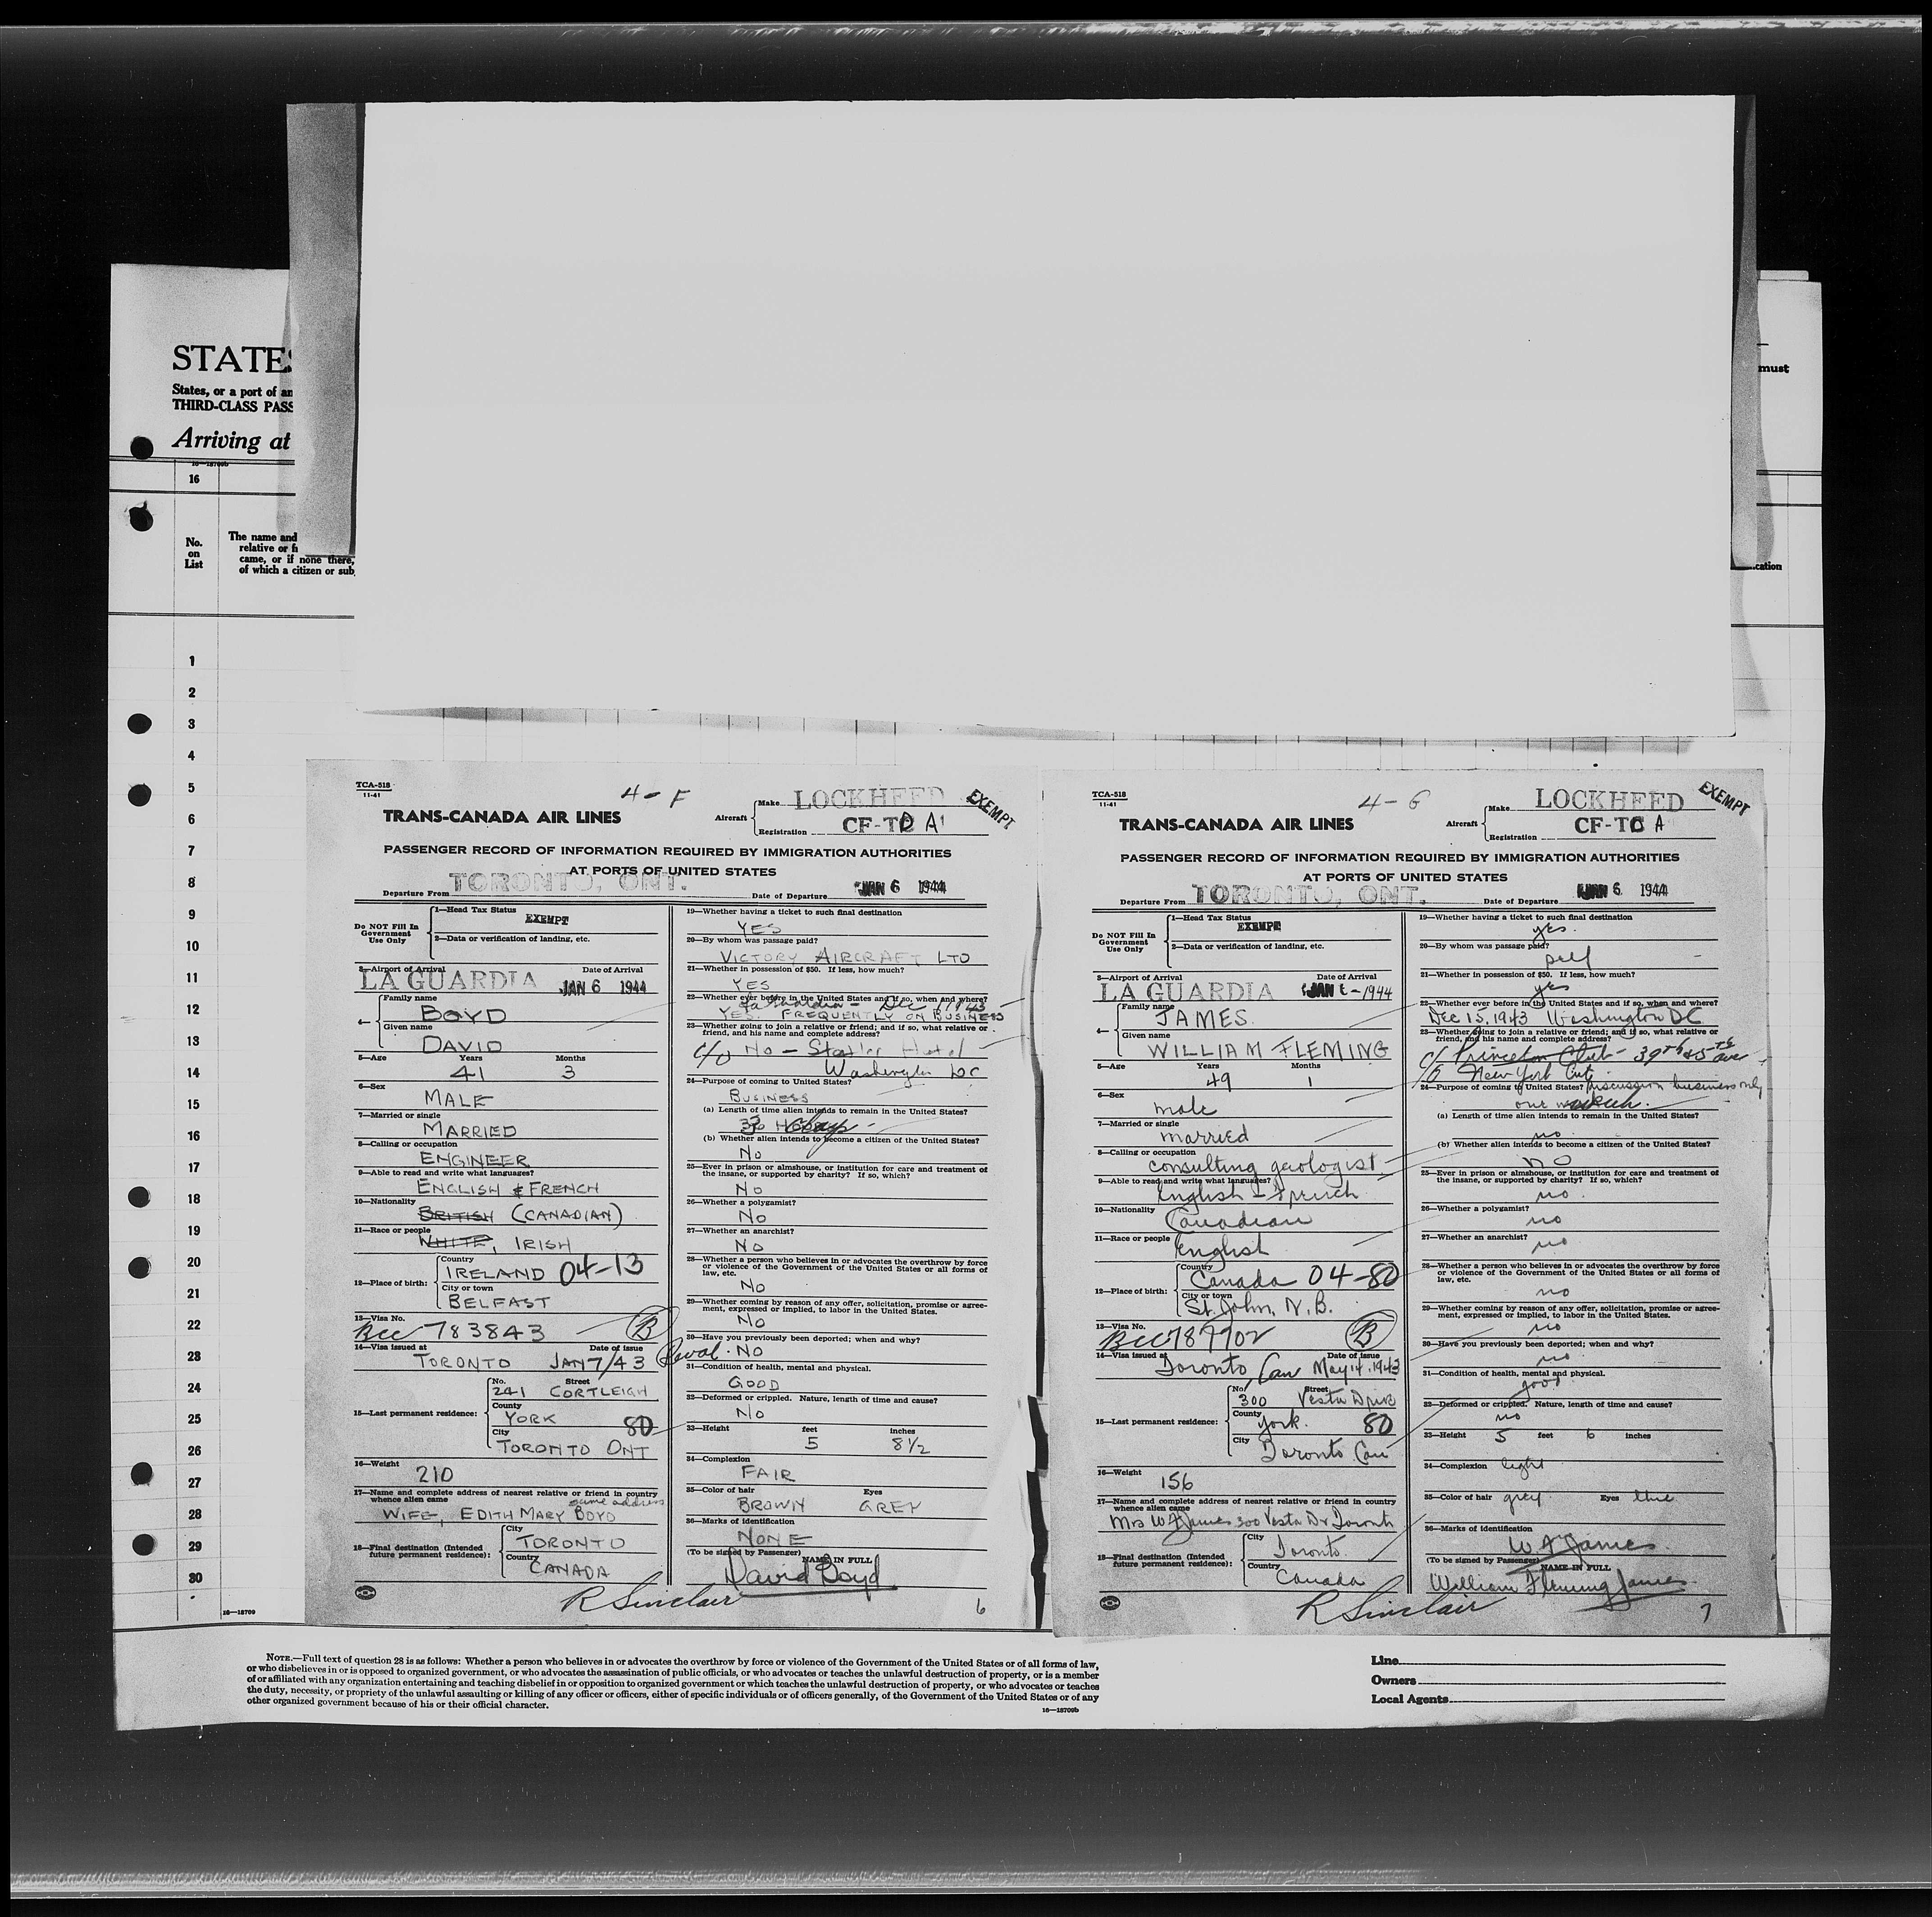 STATES
States, or a port of an
THIRD-CLASS PASS
Arriving at
must
16—18709b
16
No.
on
List
The name and
relative or fr
came, or if none there,
of which a citizen or sub
cation
1
2
3
4
5
6
7
8
9
10
11
12
13
14
15
16
17
18
19
20
21
22
23
24
25
26
27
28
29
30
16—18709
TCA-518
11-41
4-F
TRANS-CANADA AIR LINES
Aircraft
Make LOCKHEED
Registration CF-TC A
EXEMPT
PASSENGER RECORD OF INFORMATION REQUIRED BY IMMIGRATION AUTHORITIES
AT PORTS OF UNITED STATES
Departure From TORONTO, ONT. Date of Departure JAN 6 1944
Do NOT Fill In
Government
Use Only
1—Head Tax Status
EXEMPT
2—Data or verification of landing, etc.
3—Airport of Arrival Date of Arrival
LA GUARDIA JAN 6 1944
4—
Family name
BOYD
Given name
DAVID
5—Age Years Months
41 3
6—Sex
MALE
7—Married or single
MARRIED
8—Calling or occupation
ENGINEER
9—Able to read and write what languages?
ENGLISH & FRENCH
10—Nationality
BRITISH (CANADIAN)
11—Race or people
WHITE, IRISH
12—Place of birth:
Country
IRELAND 04-13
City or town
BELFAST
13—Visa No.
BCC 783843 B
14—Visa issued at Date of issue
TORONTO JAN 7/43
15—Last permanent residence:
No. Street
241 CORTLEIGH
County
YORK 80
City
TORONTO ONT
16—Weight
210
17—Name and complete address of nearest relative or friend in country
whence alien came same address
WIFE, EDITH MARY BOYD
18—Final destination (Intended
future permanent residence):
City
TORONTO
Country
CANADA
19—Whether having a ticket to such final destination
YES
20—By whom was passage paid?
VICTORY AIRCRAFT LTD
21—Whether in possession of $50. If less, how much?
YES
22—Whether ever before in the United States and if so, when and where?
La Guardia - Dec 1943
YES. FREQUENTLY ON BUSINESS
23—Whether going to join a relative or friend; and if so, what relative or
friend, and his name and complete address?
c/o No - Statler Hotel
Washington DC
24—Purpose of coming to United States?
BUSINESS
(a) Length of time alien intends to remain in the United States?
(b) Whether alien intends to become a citizen of the United States?
No
25—Ever in prison or almshouse, or institution for care and treatment of
the insane, or supported by charity? If so, which?
No
26—Whether a polygamist?
No
27—Whether an anarchist?
No
28—Whether a person who believes in or advocates the overthrow by force
or violence of the Government of the United States or all forms of
law, etc.
No
29—Whether coming by reason of any offer, solicitation, promise or agree-
ment, expressed or implied, to labor in the United States.
No
30—Have you previously been deported; when and why?
No
31—Condition of health, mental and physical.
GOOD
32—Deformed or crippled. Nature, length of time and cause?
No
33—Height feet inches
5 8 1/2
34—Complexion
FAIR
35—Color of hair Eyes
BROWN GREY
36—Marks of identification
NONE
(To be signed by Passenger) NAME IN FULL
David Boyd
R Sinclair
6
TCA-518
11-41
4-G
TRANS-CANADA AIR LINES
Aircraft
Make LOCKHEED
Registration CF-TC A
EXEMPT
PASSENGER RECORD OF INFORMATION REQUIRED BY IMMIGRATION AUTHORITIES
AT PORTS OF UNITED STATES
Departure From TORONTO, ONT. Date of Departure JAN 6 1944
Do NOT Fill In
Government
Use Only
1—Head Tax Status
EXEMPT
2—Data or verification of landing, etc.
3—Airport of Arrival Date of Arrival
LA GUARDIA JAN 6 - 1944
4—
Family name
JAMES
Given name
WILLIAM FLEMING
5—Age Years Months
49 1
6—Sex
male
7—Married or single
married
8—Calling or occupation
consulting geologist
9—Able to read and write what languages?
English - French
10—Nationality
Canadian
11—Race or people
English
12—Place of birth:
Country
Canada 04-80
City or town
St. John, N.B.
13—Visa No.
BCC 787702 B
14—Visa issued at Date of issue
Toronto, Can May 14, 1943
15—Last permanent residence:
No. Street
300 Vesta Drive
County
York. 80
City
Toronto Can
16—Weight
156
17—Name and complete address of nearest relative or friend in country
whence alien came
Mrs W F James 300 Vesta Dr Toronto
18—Final destination (Intended
future permanent residence):
City
Toronto.
Country
Canada
19—Whether having a ticket to such final destination
yes.
20—By whom was passage paid?
self
21—Whether in possession of $50. If less, how much?
yes
22—Whether ever before in the United States and if so, when and where?
Dec 15, 1943 Washington DC
23—Whether going to join a relative or friend; and if so, what relative or
friend, and his name and complete address?
c/o Princeton Club - 39th & 5th ave
New York City
24—Purpose of coming to United States? discussion business only
one week.
(a) Length of time alien intends to remain in the United States?
no
(b) Whether alien intends to become a citizen of the United States?
no
25—Ever in prison or almshouse, or institution for care and treatment of
the insane, or supported by charity? If so, which?
no.
26—Whether a polygamist?
no
27—Whether an anarchist?
no
28—Whether a person who believes in or advocates the overthrow by force
or violence of the Government of the United States or all forms of
law, etc.
no
29—Whether coming by reason of any offer, solicitation, promise or agree-
ment, expressed or implied, to labor in the United States.
no
30—Have you previously been deported; when and why?
no
31—Condition of health, mental and physical.
good
32—Deformed or crippled. Nature, length of time and cause?
no
33—Height 5 feet 6 inches
34—Complexion light
35—Color of hair grey Eyes blue
36—Marks of identification
W. F. James.
(To be signed by Passenger) NAME IN FULL
William Fleming James
R Sinclair
7
NOTE.—Full text of question 28 is as follows: Whether a person who believes in or advocates the overthrow by force or violence of the Government of the United States or of all forms of law,
or who disbelieves in or is opposed to organized government, or who advocates the assassination of public officials, or who advocates or teaches the unlawful destruction of property, or is a member
of or affiliated with any organization entertaining and teaching disbelief in or opposition to organized government or which teaches the unlawful destruction of property, or who advocates or teaches
the duty, necessity, or propriety of the unlawful assaulting or killing of any officer or officers, either of specific individuals or of officers generally, of the Government of the United States or of any
other organized government because of his or their official character.
16—18709b
Line
Owners
Local Agents